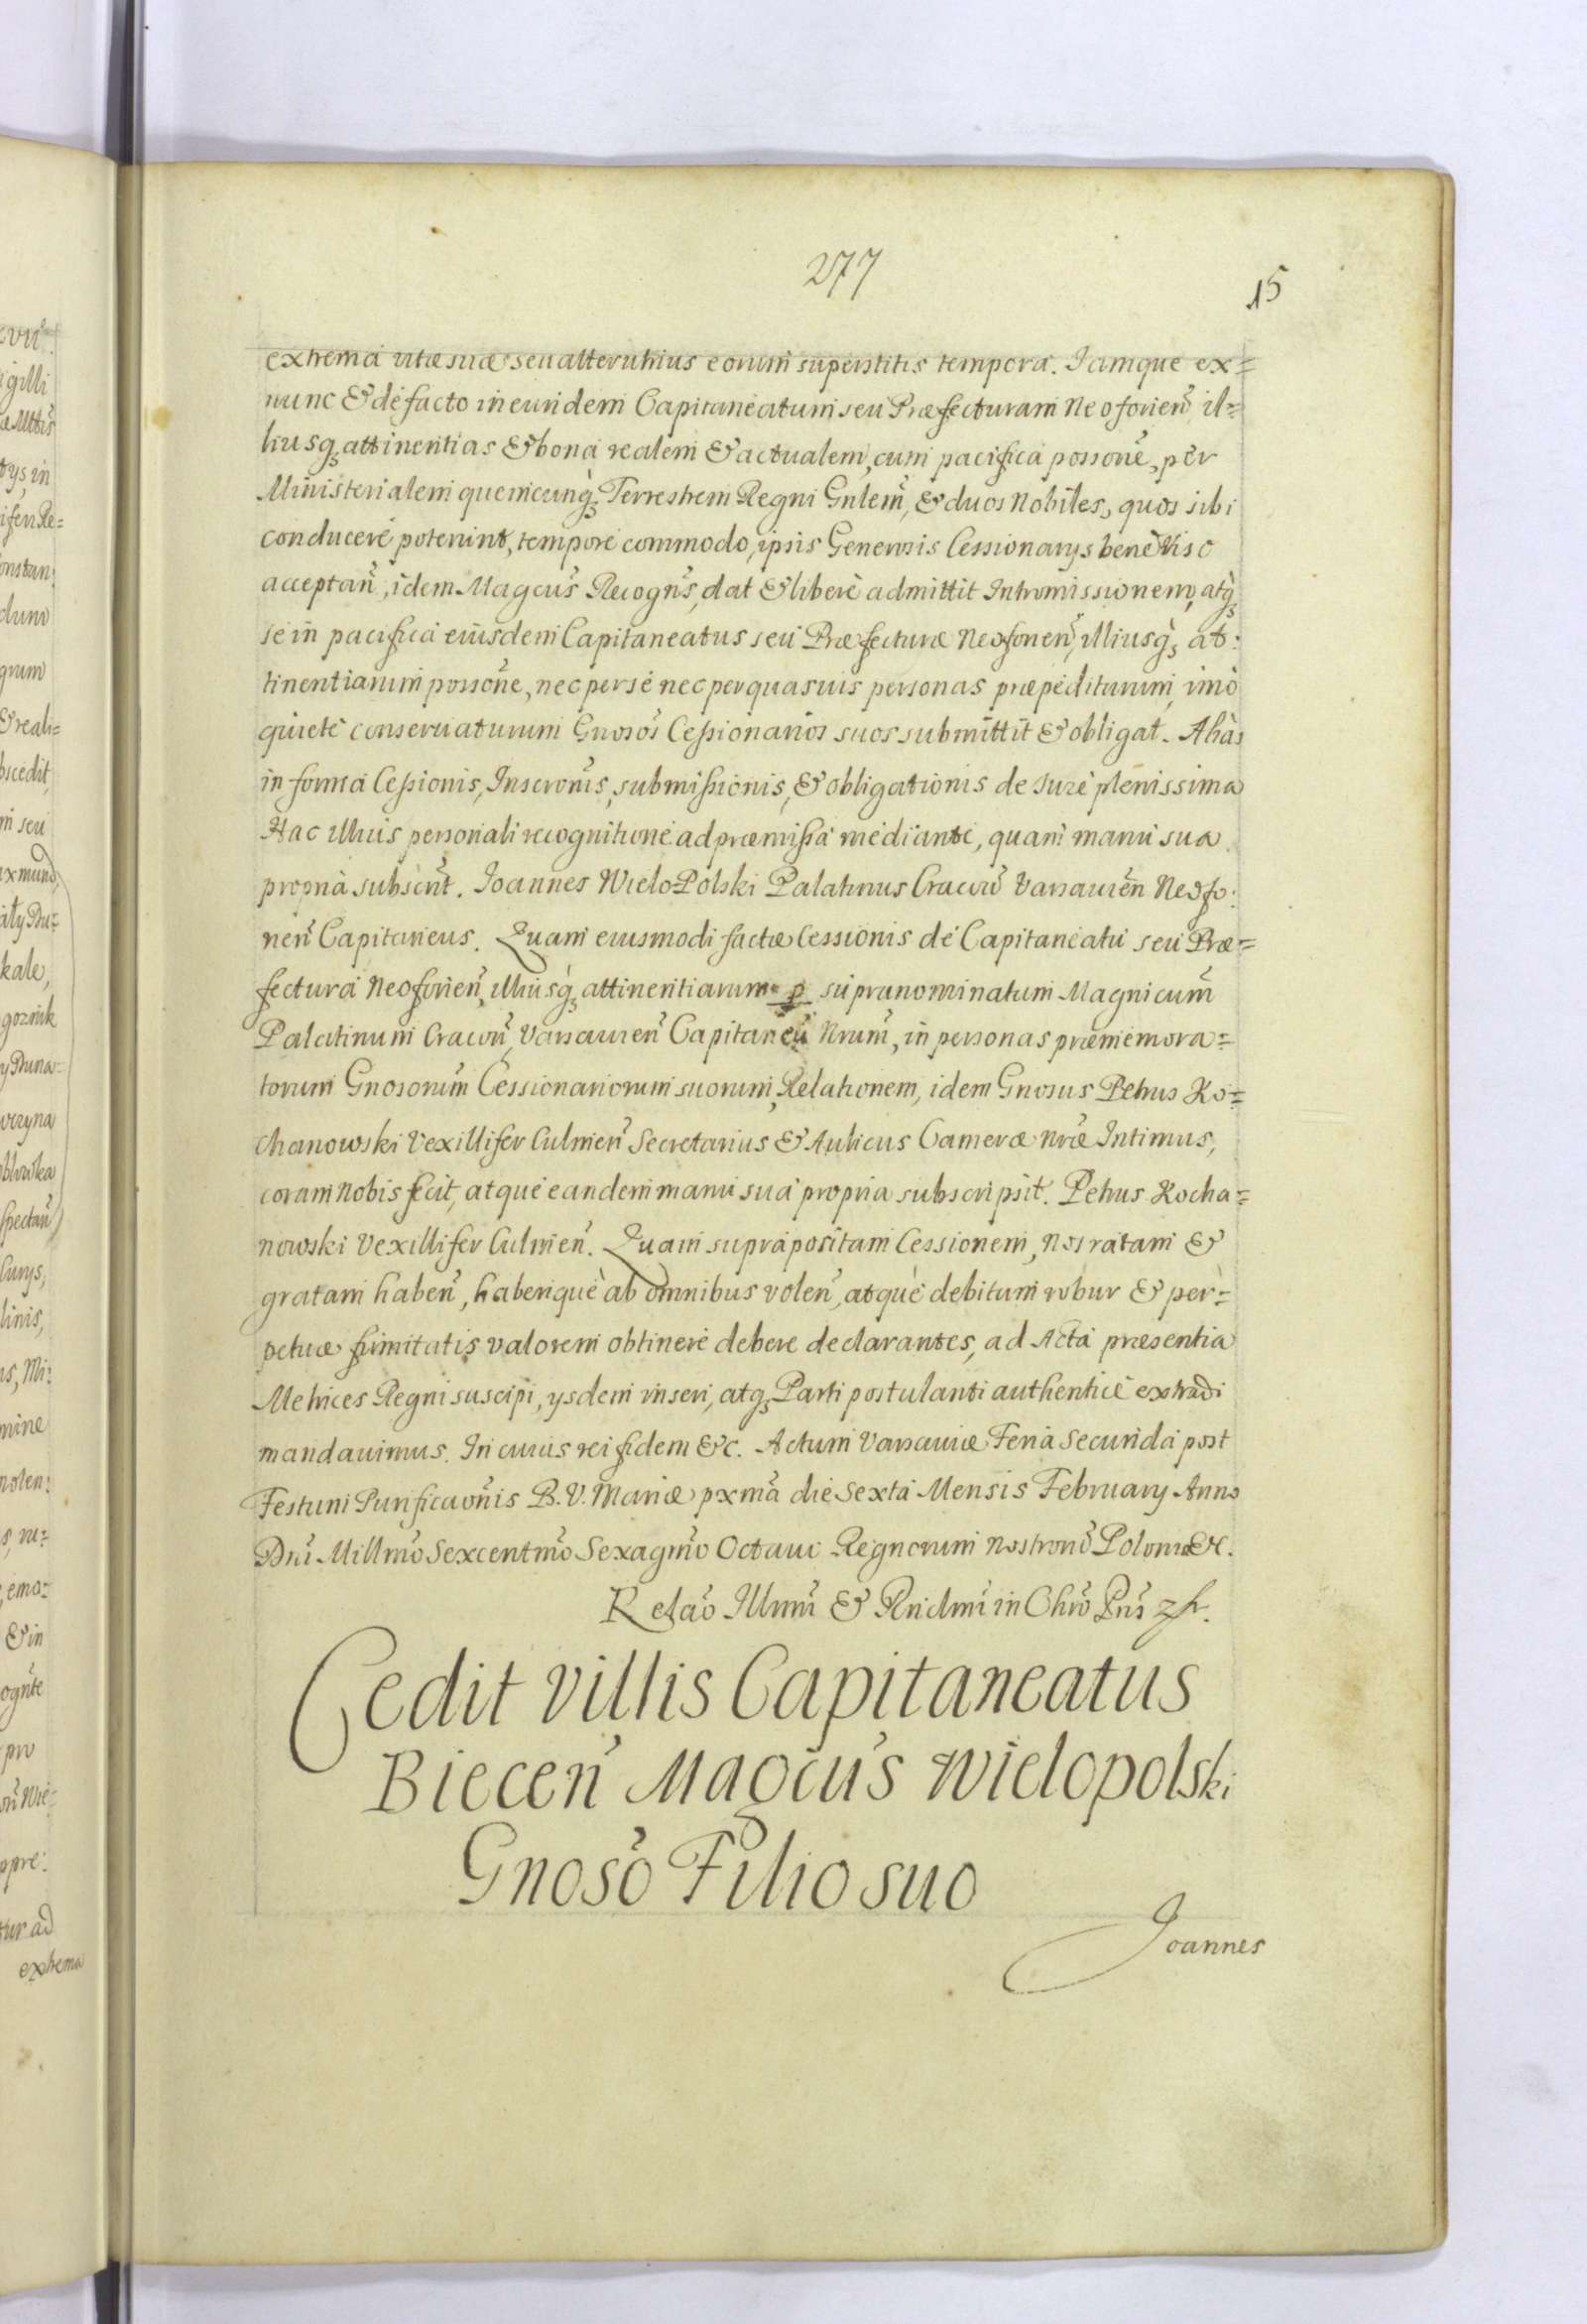 277
15
extrema vitæ suæ seu alterutrius eorum superstitis tempora. Jamque ex=
nunc & de facto in eundem Capitaneatum seu Præfecturam Neoforien̄, il=
liusq; attinentias & bona realem & actualem, cum pacifica possone, per
Ministerialem quemcunq; Terrestrem Regni Gnlem, & duos Nobiles, quos sibi
conducere potenint, tempore commodo, ipsis Generosis Cessionarys bene viso
acceptan̄, idem Magcus Recogns, dat & libere admittit Intromissionem, atq;
se in pacifica eiusdem Capitaneatus seu Præfecturæ Neoforien̄, illiusq; at:
tinentiarum possone, nec per se nec per quasuis personas præpediturum, imò
quiete conseruaturum Gnosos Cessionarios suos submittit & obligat. Aliàs
in forma Cessionis, Inscronis, submissionis, & obligationis de Jure plenissima
Hac illius personali recognitione ad præmissa mediante, quam manu sua
propria subscrit. Joannes WieloPolski Palatinus Cracou̅ Varsauien̄ Neofo:
rien̄ Capitaneus. Quam eiusmodi factæ Cessionis de Capitaneatu seu Præ=
fectura Neoforien̄, illiusq; attinentiarum p supranominatum Magnicum
Palatinum Cracou̅, Varsauien̄ Capitaneu̅ Nrum, in personas præmemora=
torum Gnosorum Cessionariorum suorum, Relationem, idem Gnosus Petrus Ko=
chanowski Vexillifer Culmen̄ Secretarius & Aulicus Cameræ Nræ Intimus,
coram Nobis fecit, atque eandem manu sua propria subscripsit. Petrus Kocha=
nowski Vexillifer Culmen̄. Quam suprapositam Cessionem, Nos ratam &
gratam haben̄, haberique ab omnibus volen̄, atque debitum robur & per=
petuæ firmitatis valorem obtinere debere declarantes, ad Acta præsentia
Metrices Regni suscipi, ysdem inseri, atq; Parti postulanti authentice extradi
mandauimus. In cuius rei fidem &c. Actum Varsauiæ Feria Secunda post
Festum Purificaonis B. V. Mariæ pxma die Sexta Mensis February Anno
Dni Millmo Sexcentmo Sexagmo Octauo Regnorum Nostroru̅ Poloniæ &c.
Relao Illmi & Rndmi in Chro Pris
Cedit villis Capitaneatus
Biecen̄ Magcus Wielopolski
Gnoso Filio suo
Joannes